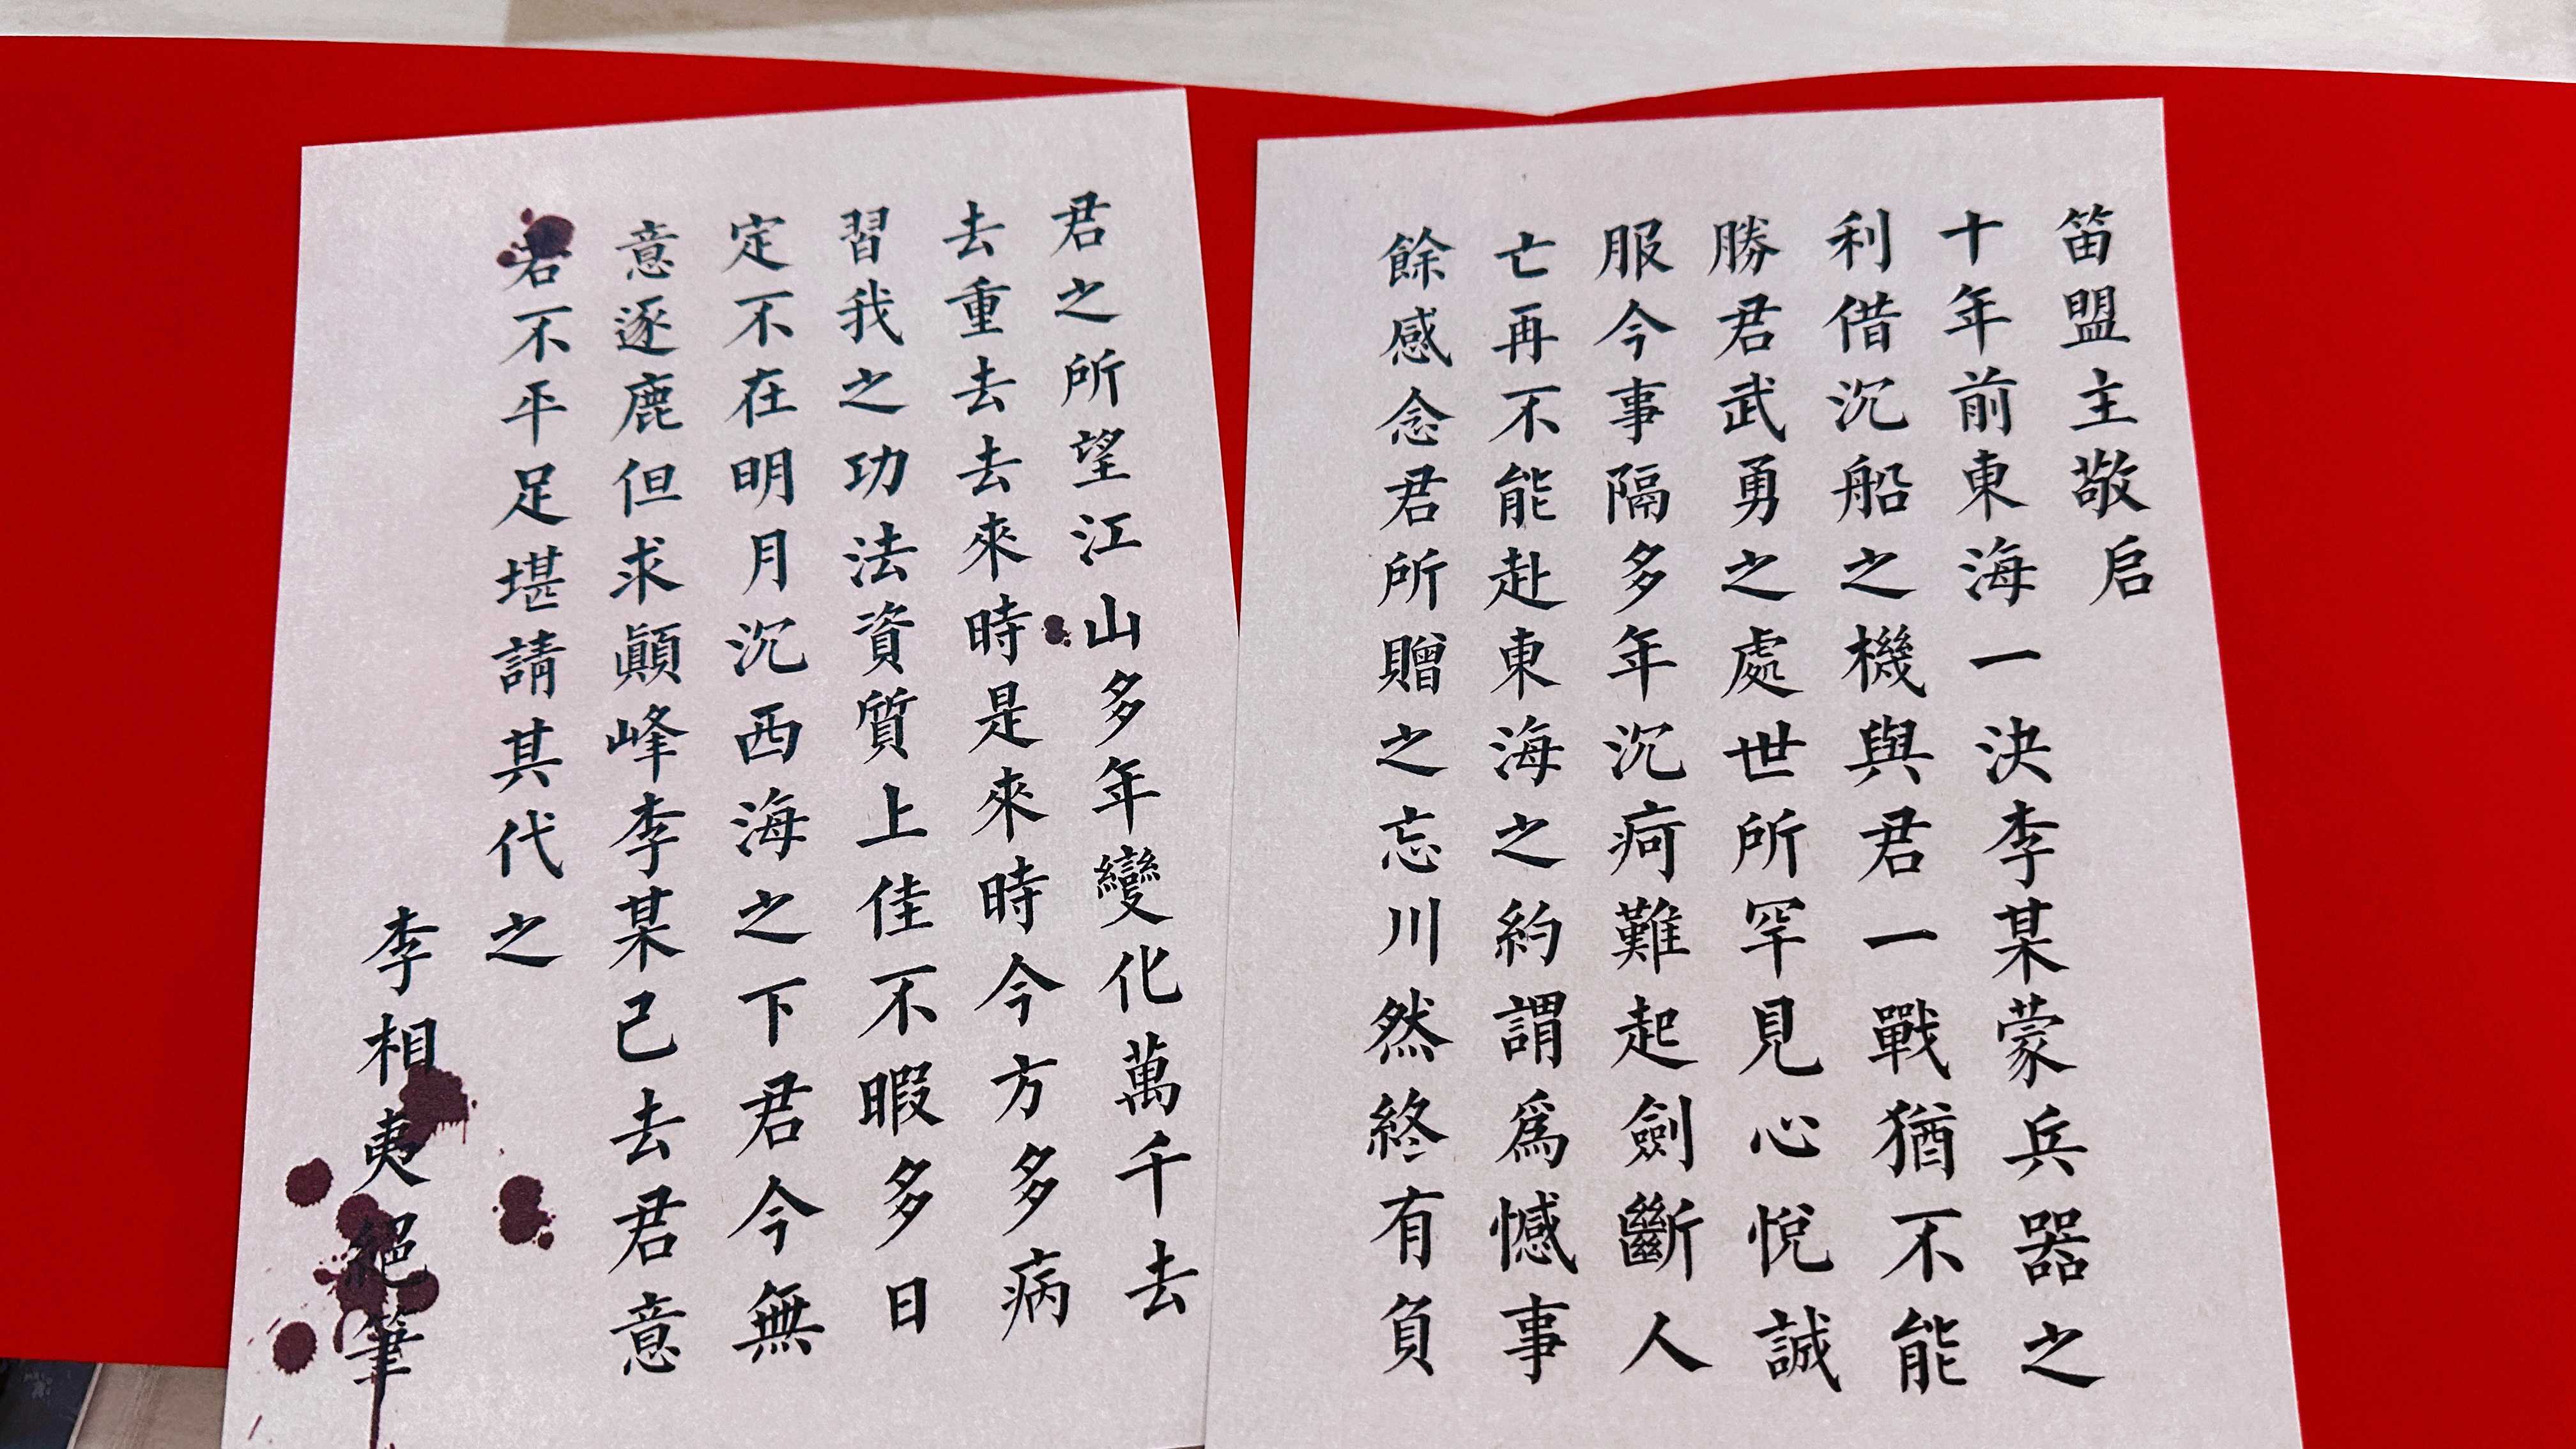 笛盟主敬启
十年前東海一決李某蒙兵器之
利借沉船之機與君一戰猶不能
勝君武勇之處世所罕見心悅誠
服今事隔多年沉疴難起劍斷人
亡再不能赴東海之約謂為憾事
餘感念君所贈之忘川然終有負
君之所望江山多年變化萬千去
去重去去來時是來時今方多病
習我之功法資質上佳不暇多日
定不在明月沉西海之下君今無
意逐鹿但求顛峰李某已去君意
若不平足堪請其代之
李相夷絕筆